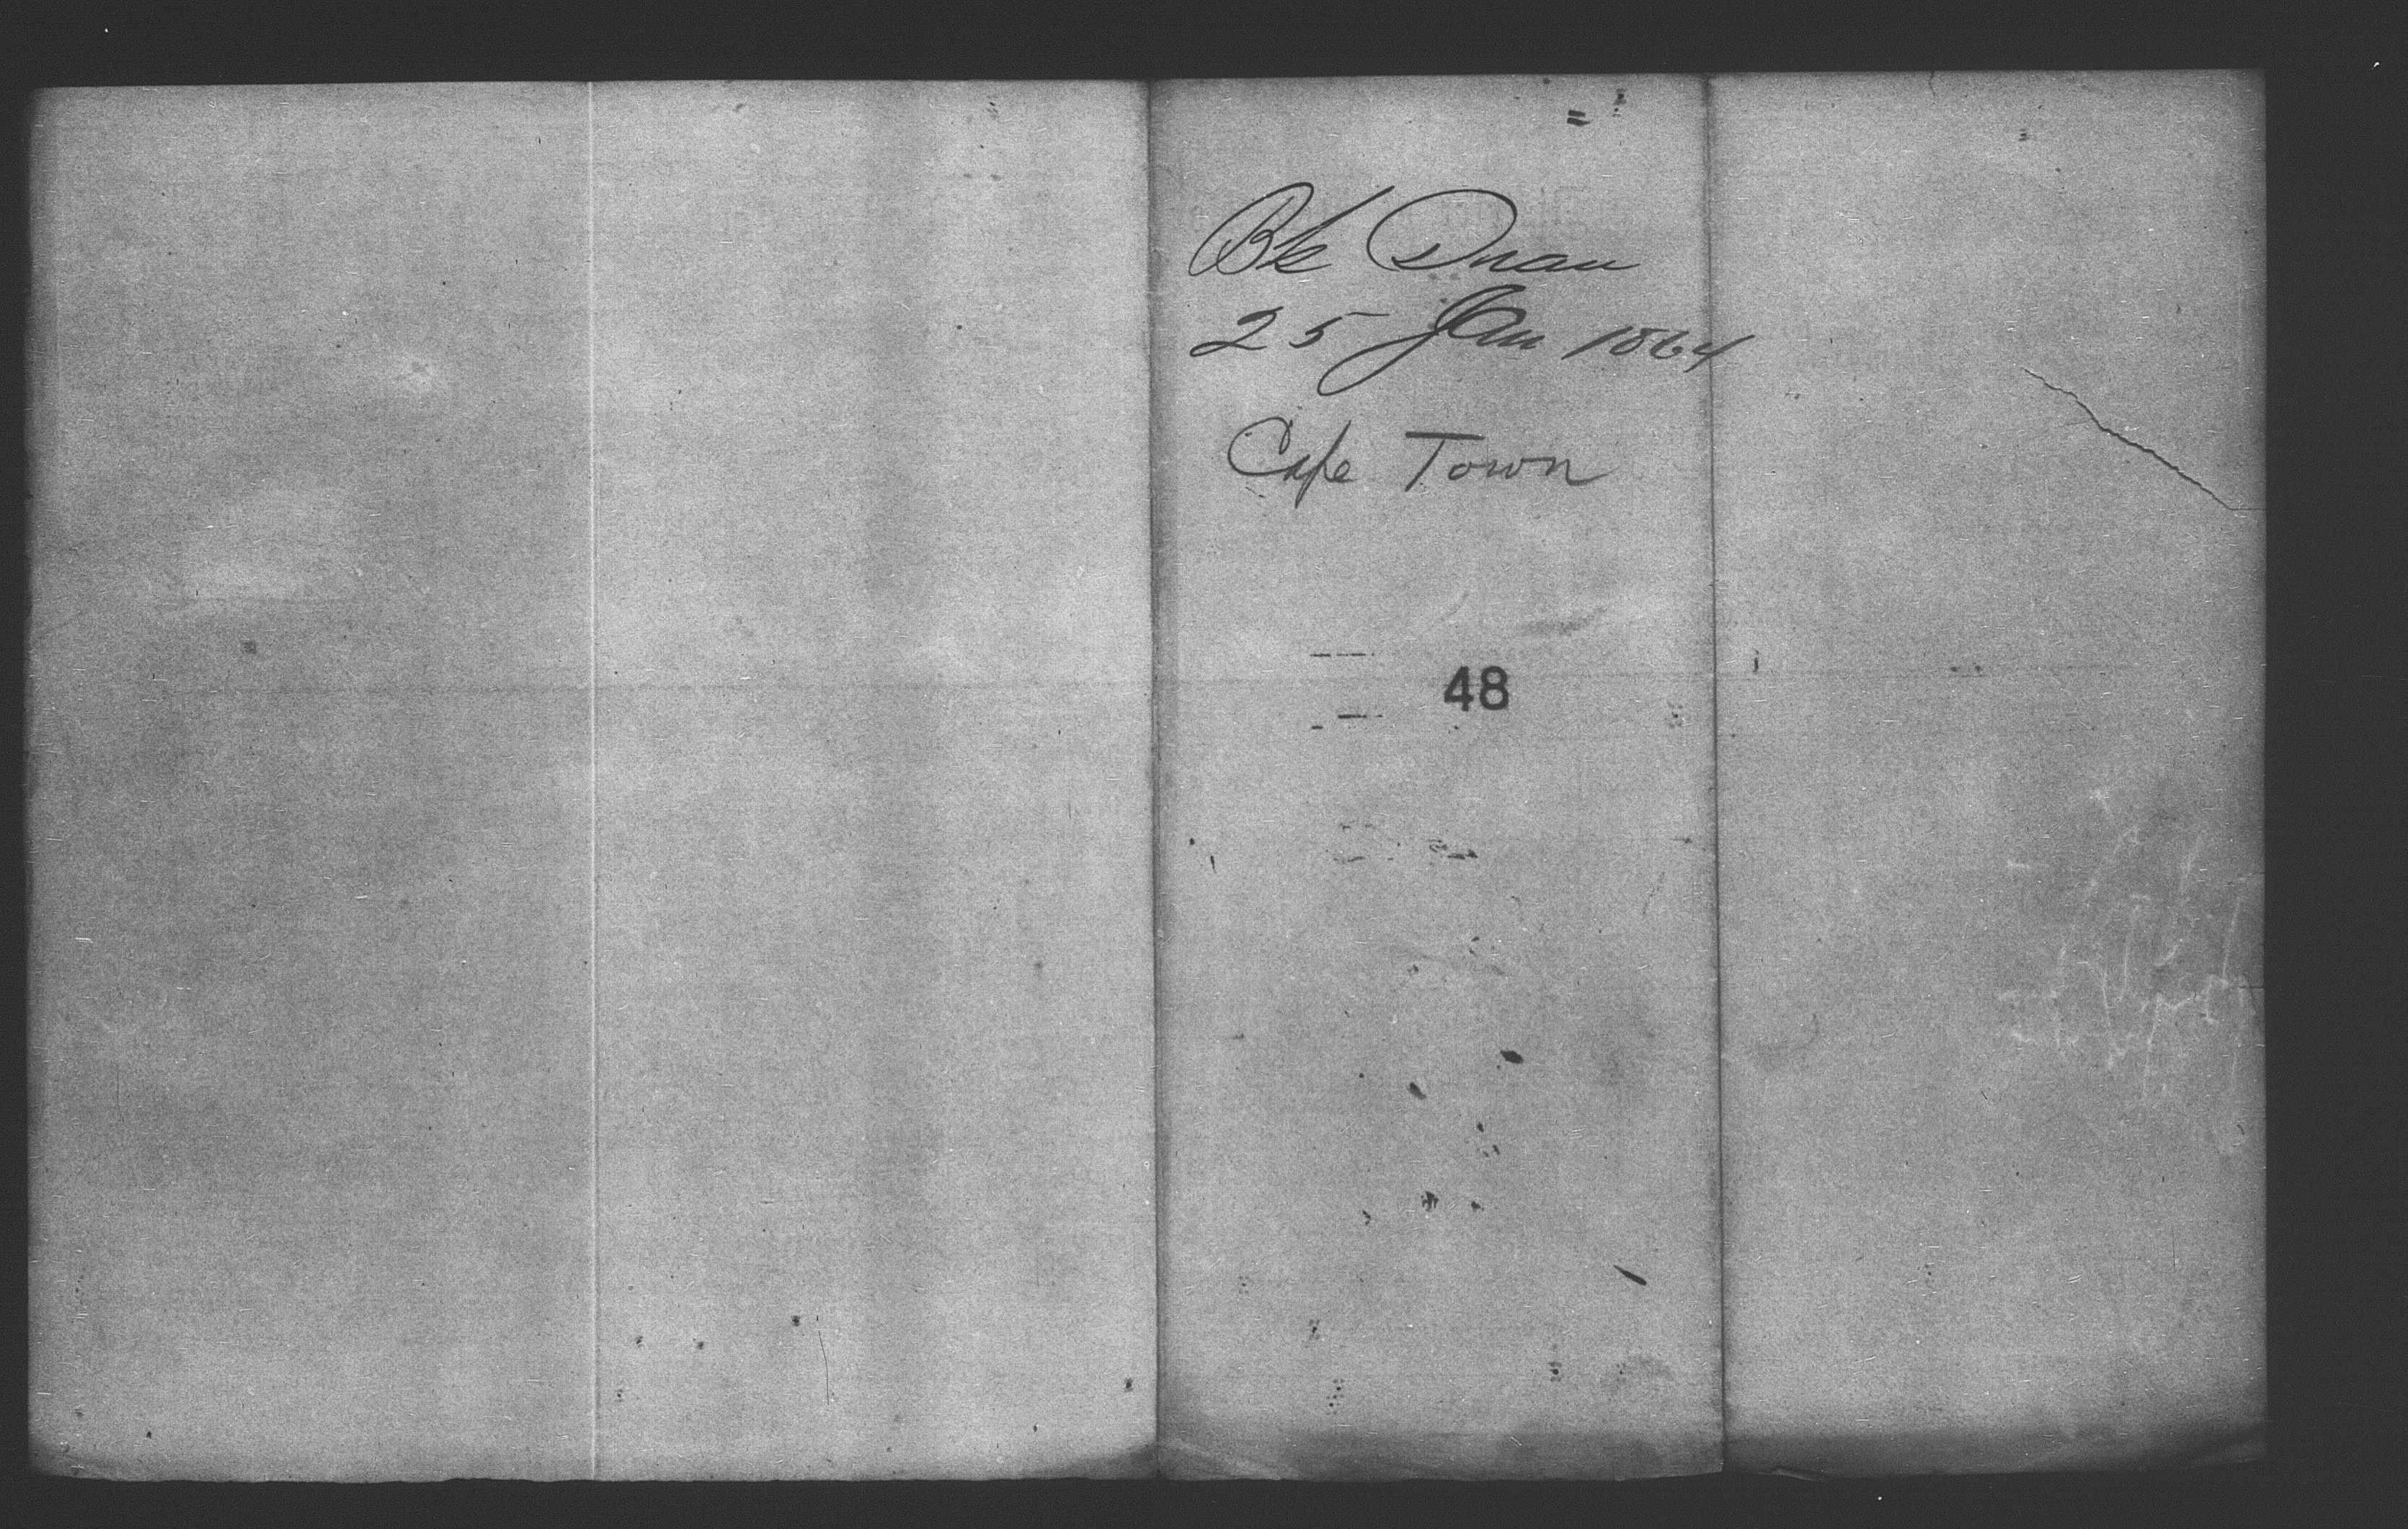 Bk Duau
25 Jan 1864
Cape Town
48